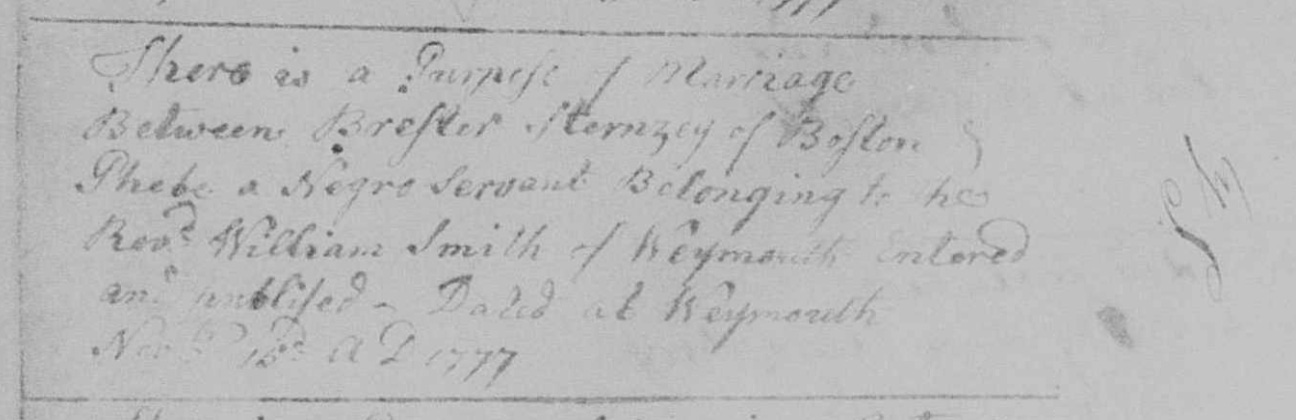 There is a Purpose of Marriage
Between Brester Sternzey of Boston &
Phebe a Negro Servant Belonging to the
Revd William Smith of Weymouth Entered
and publised - Dated at Weymouth
Novr A D 1777